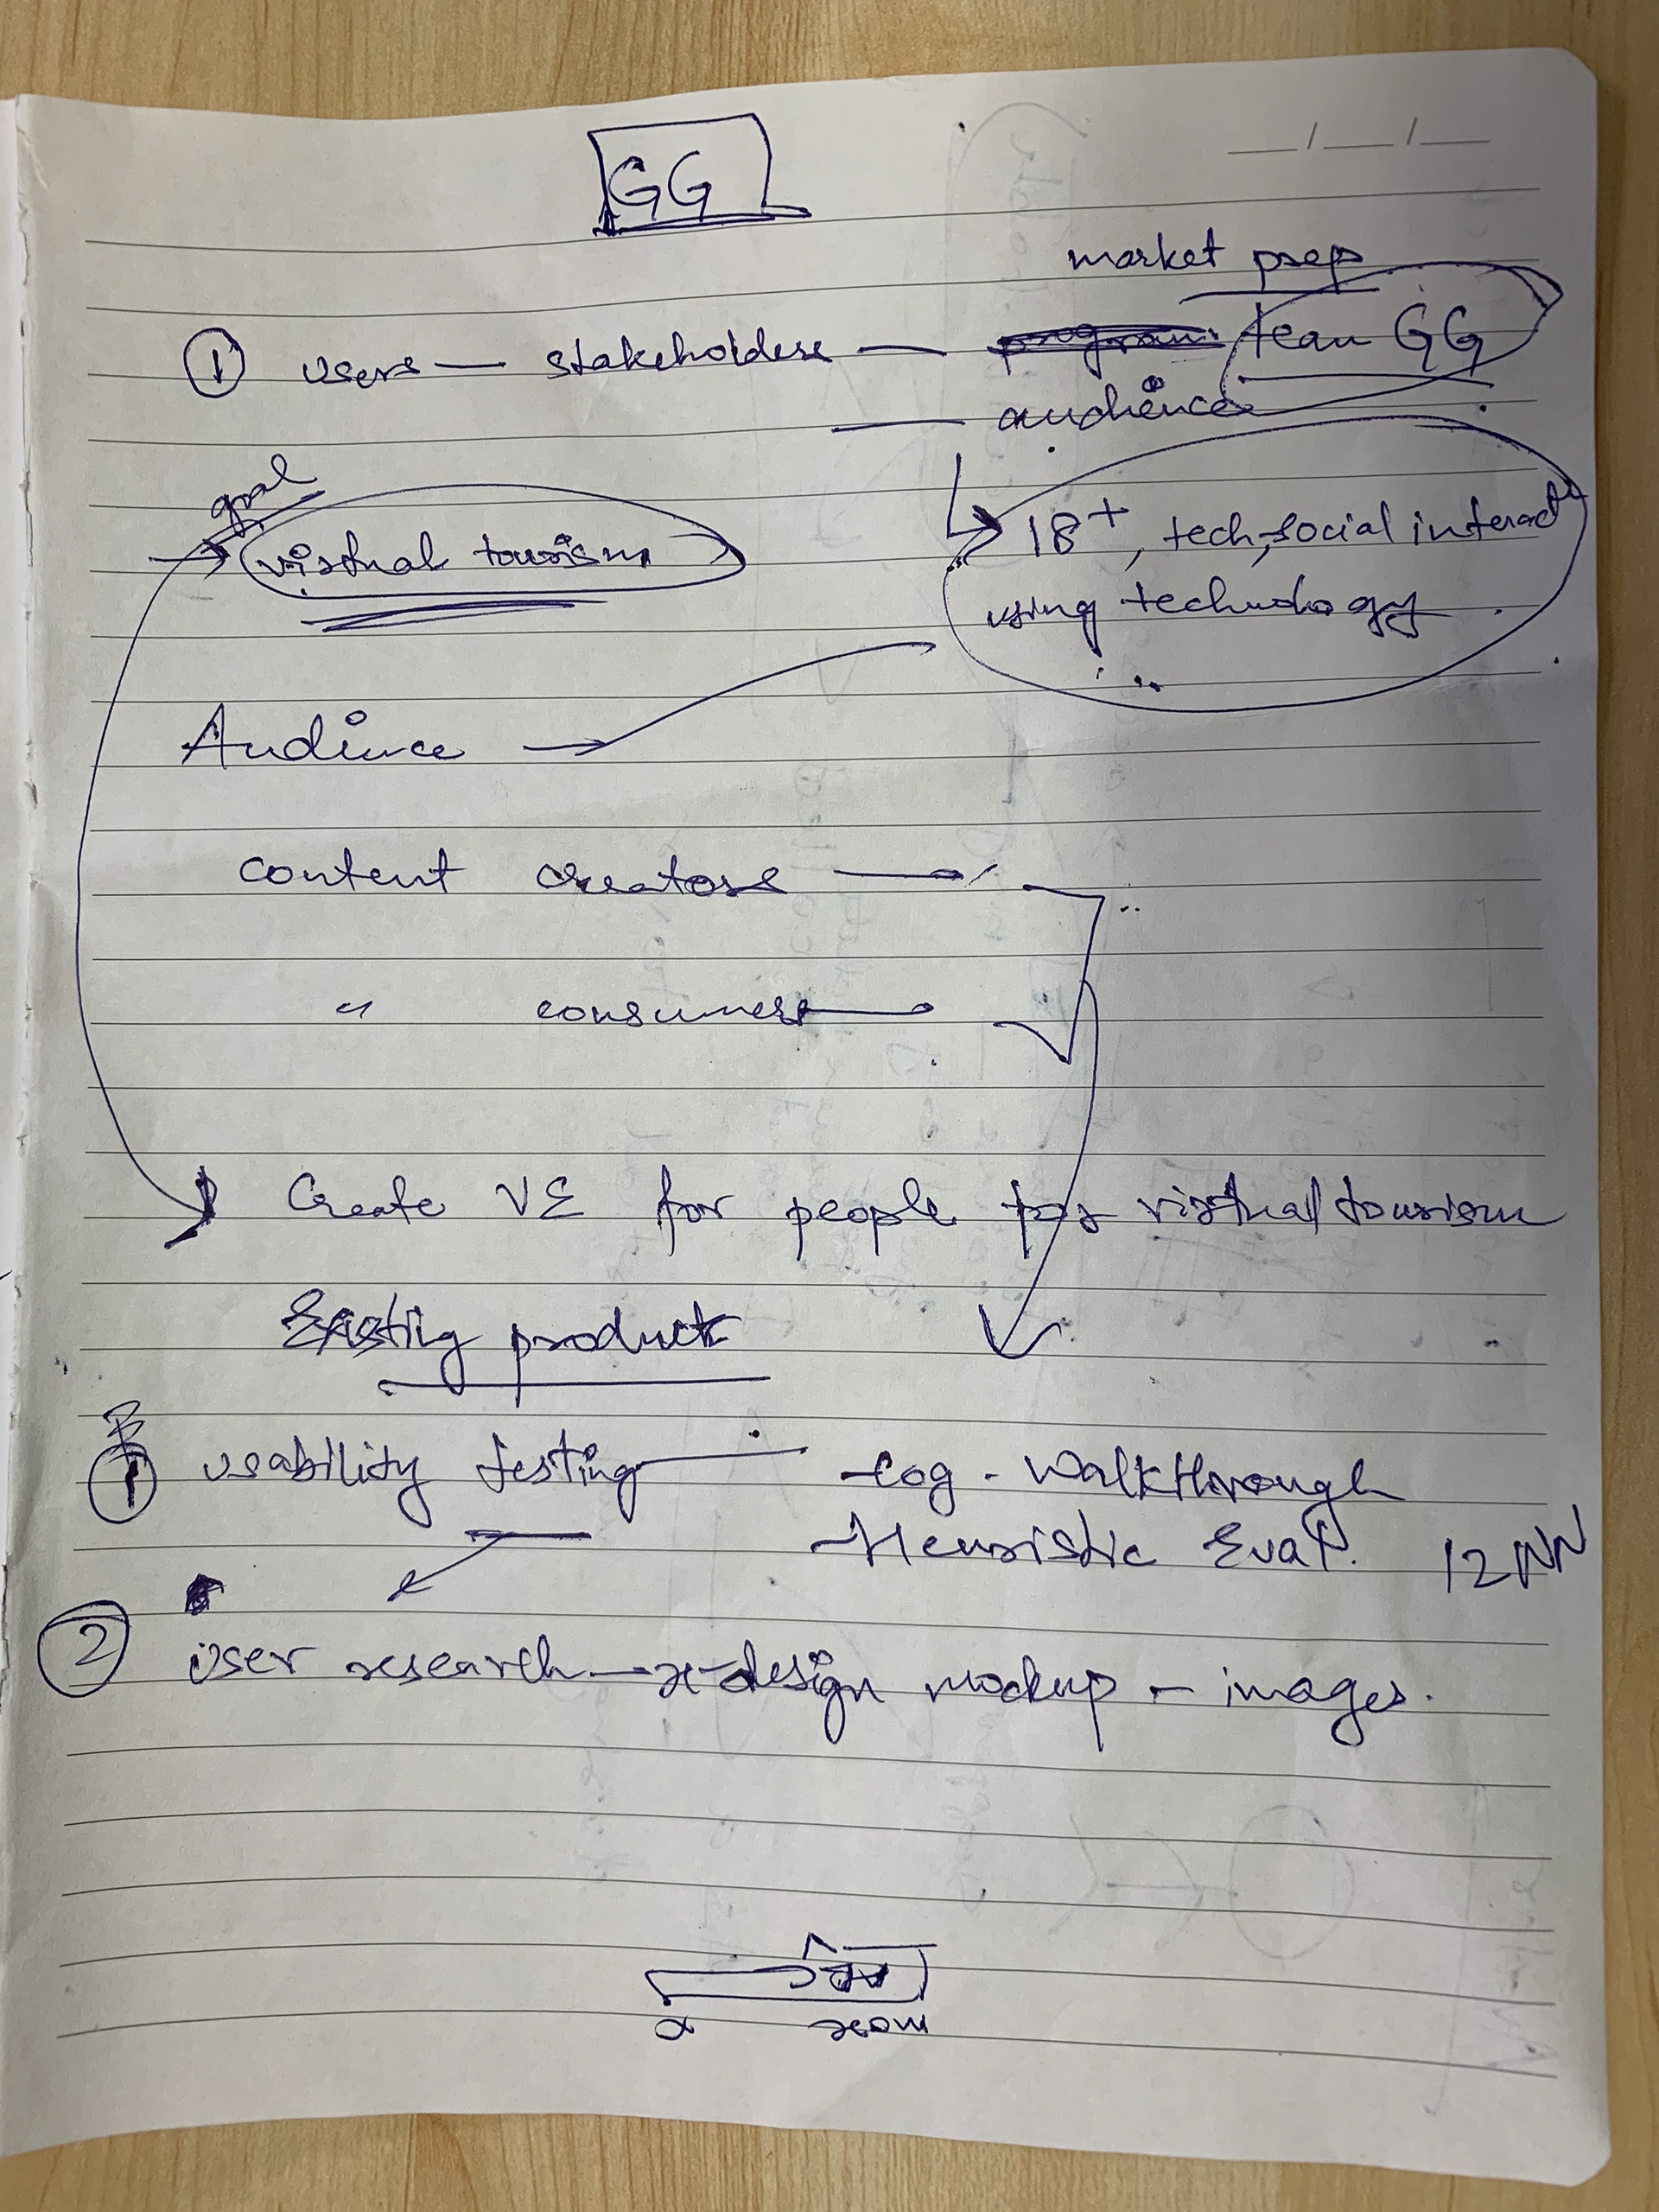 GG
market prep
① users — stakeholders — team GG
— audience
goal
→ virtual tourism
18+, tech, social interact
using technology
Audience →
content creators
" consumers
Create VE for people for virtual tourism
Existing product
① usability testing — - cog. Walkthrough
- Heuristic Eval.
② user research — re-design mockup - images.
room